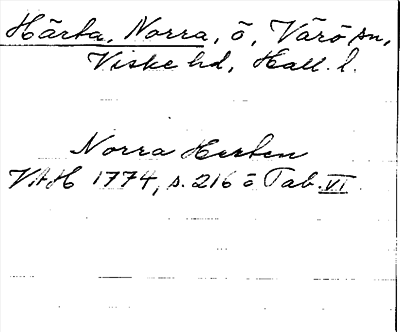 Härta, Norra, ö, Värö sn,
Viske hd, Hall. l.
Norra Herten
VAH 1774, s. 216 o Tab. VI